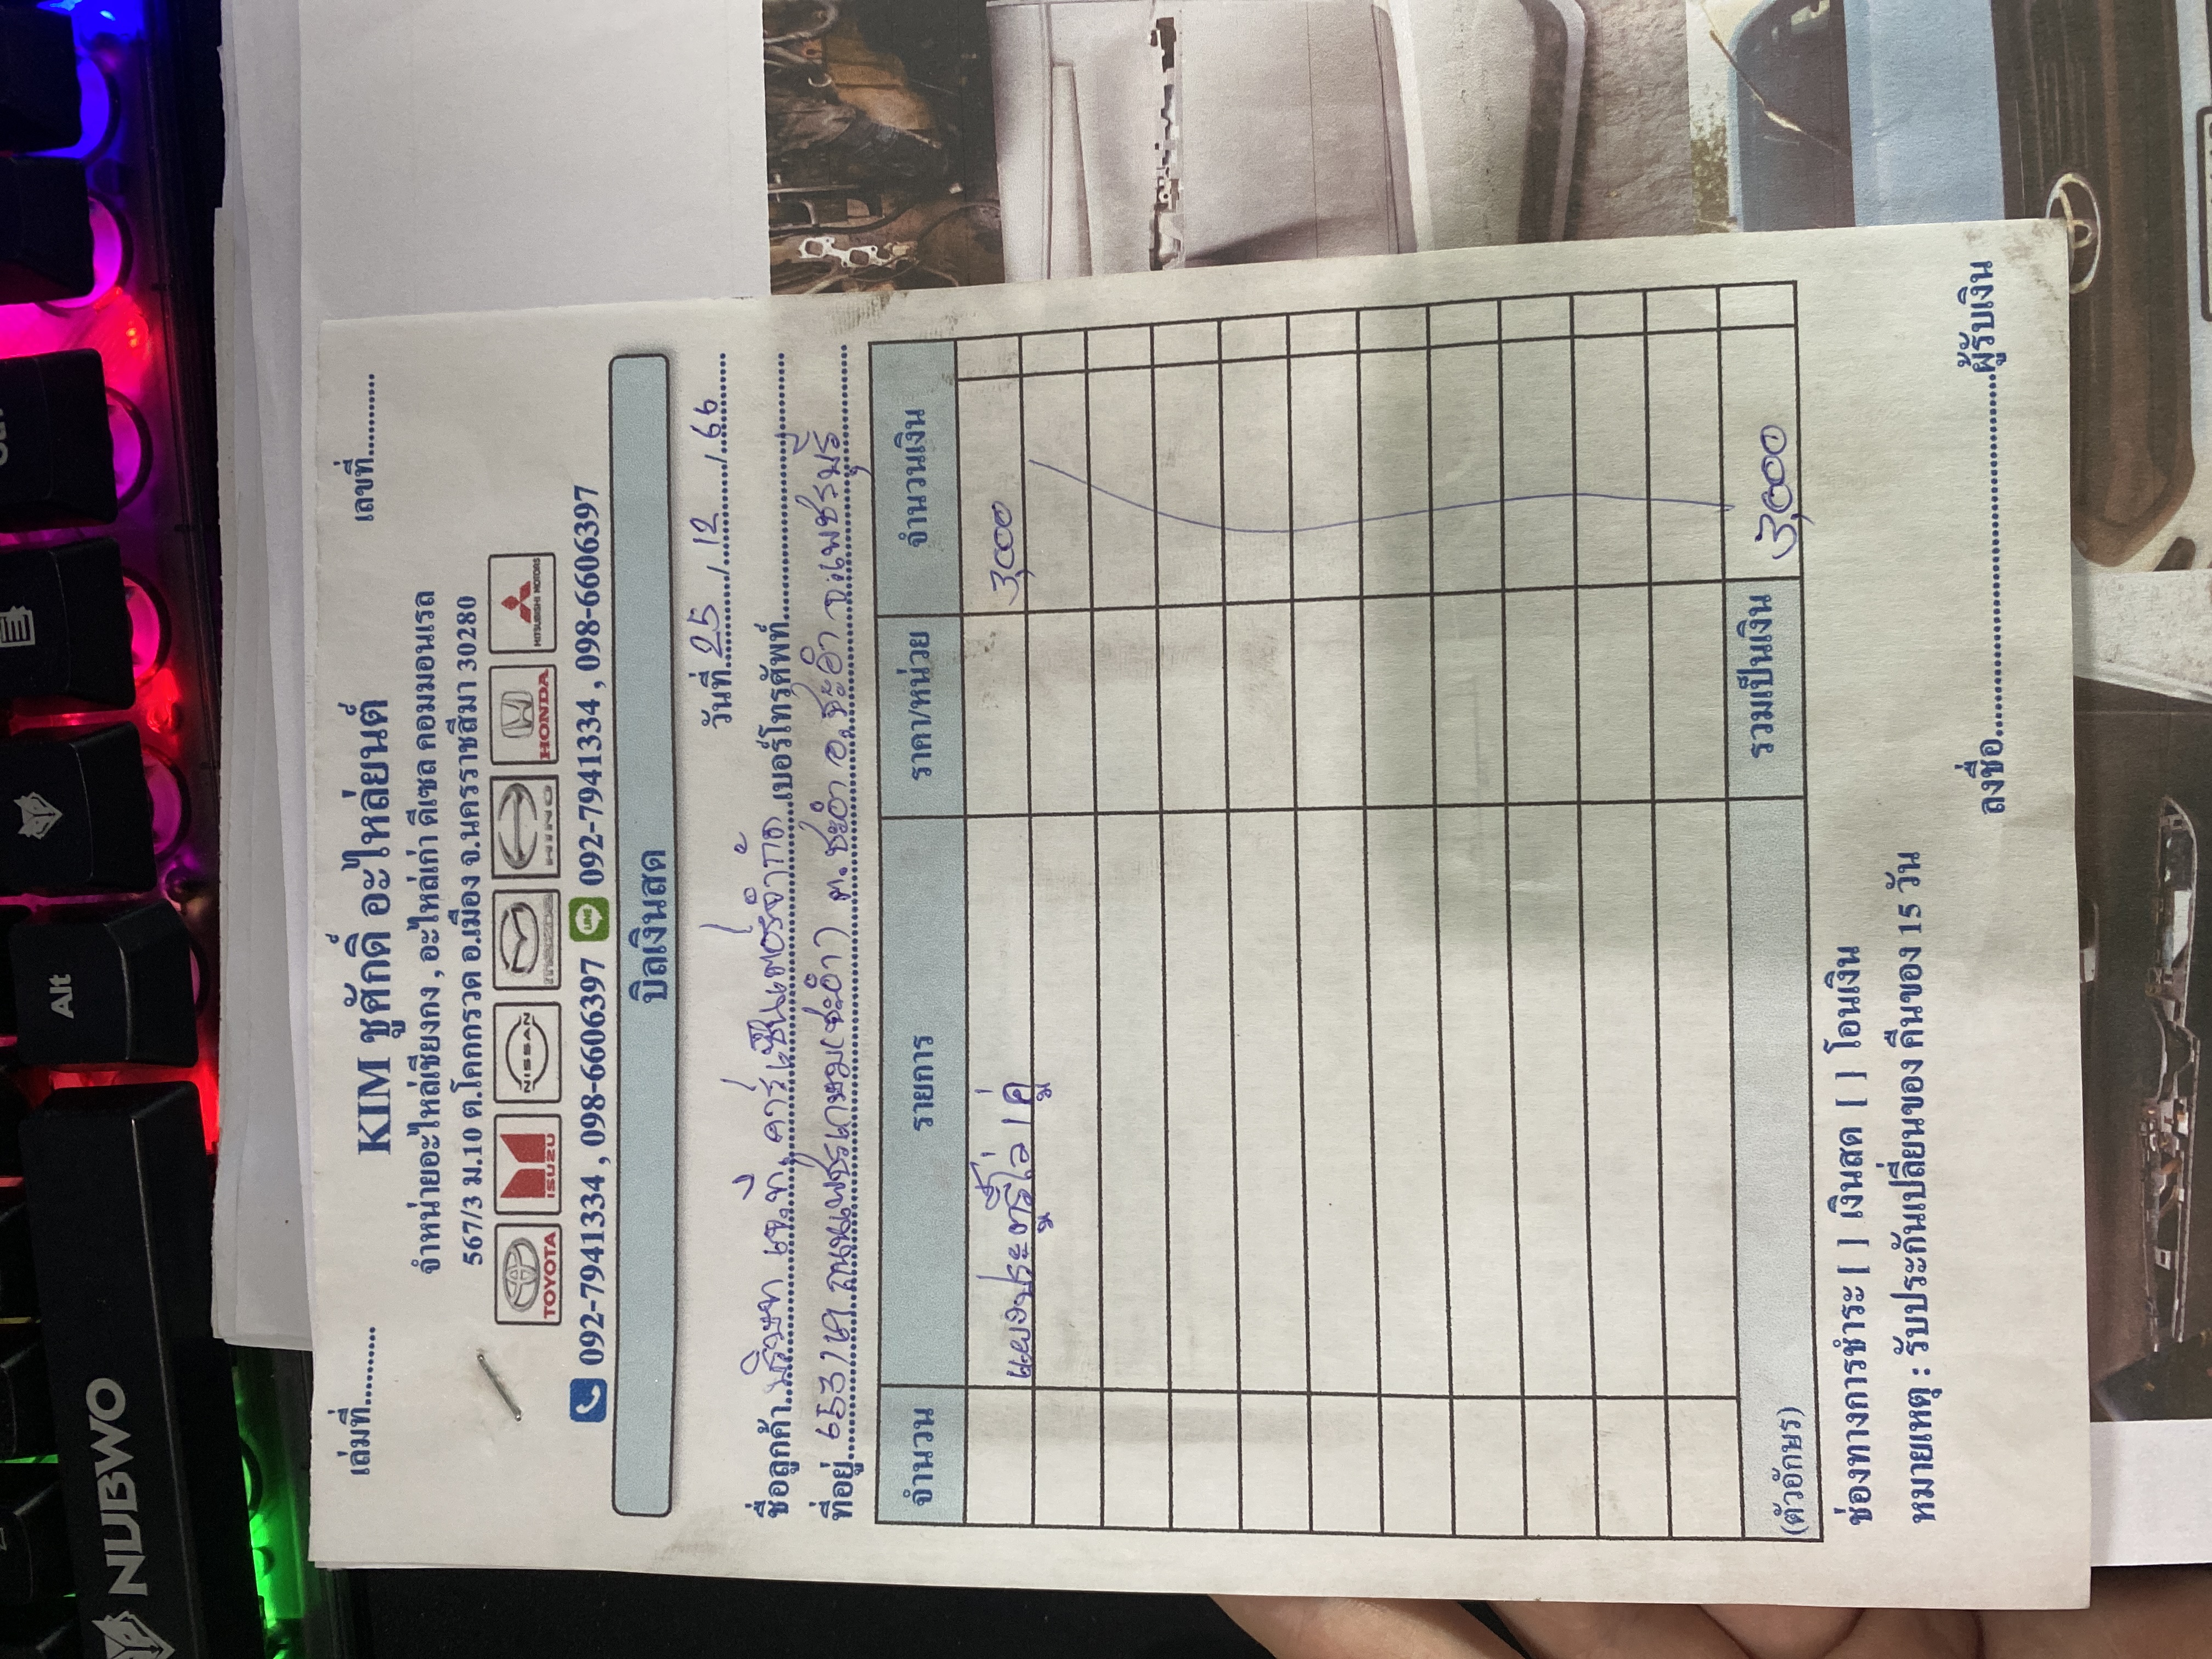 เล่มที่........... เลขที่...........
KIM ชูศักดิ์ อะไหล่ยนต์
จำหน่ายอะไหล่เชียงกง , อะไหล่เก่า ดีเซล คอมมอนเรล
567/3 ม.10 ต.โคกกรวด อ.เมือง จ.นครราชสีมา 30280
TOYOTA ISUZU NISSAN mazda HINO HONDA MITSUBISHI MOTORS
092-7941334 , 098-6606397 LINE 092-7941334 , 098-6606397
บิลเงินสด
วันที่ 25 / 12 / 66
ชื่อลูกค้า บริษัท เจ.ที. คาร์เซ็นเตอร์ จำกัด เบอร์โทรศัพท์
ที่อยู่ 653 ถนนเพชรเกษม (ชะอำ) ต.ชะอำ อ.ชะอำ จ.เพชรบุรี
จำนวน รายการ ราคา/หน่วย จำนวนเงิน
แผงประตูรีโว่ 1 คู่ 3,000
(ตัวอักษร) รวมเป็นเงิน 3,000
ช่องทางการชำระ [ ] เงินสด [ ] โอนเงิน
หมายเหตุ : รับประกันเปลี่ยนของ คืนของ 15 วัน
ลงชื่อ........................................ผู้รับเงิน
NUBWO
Alt